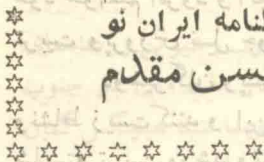 نامه ایران نو
سن مقدم